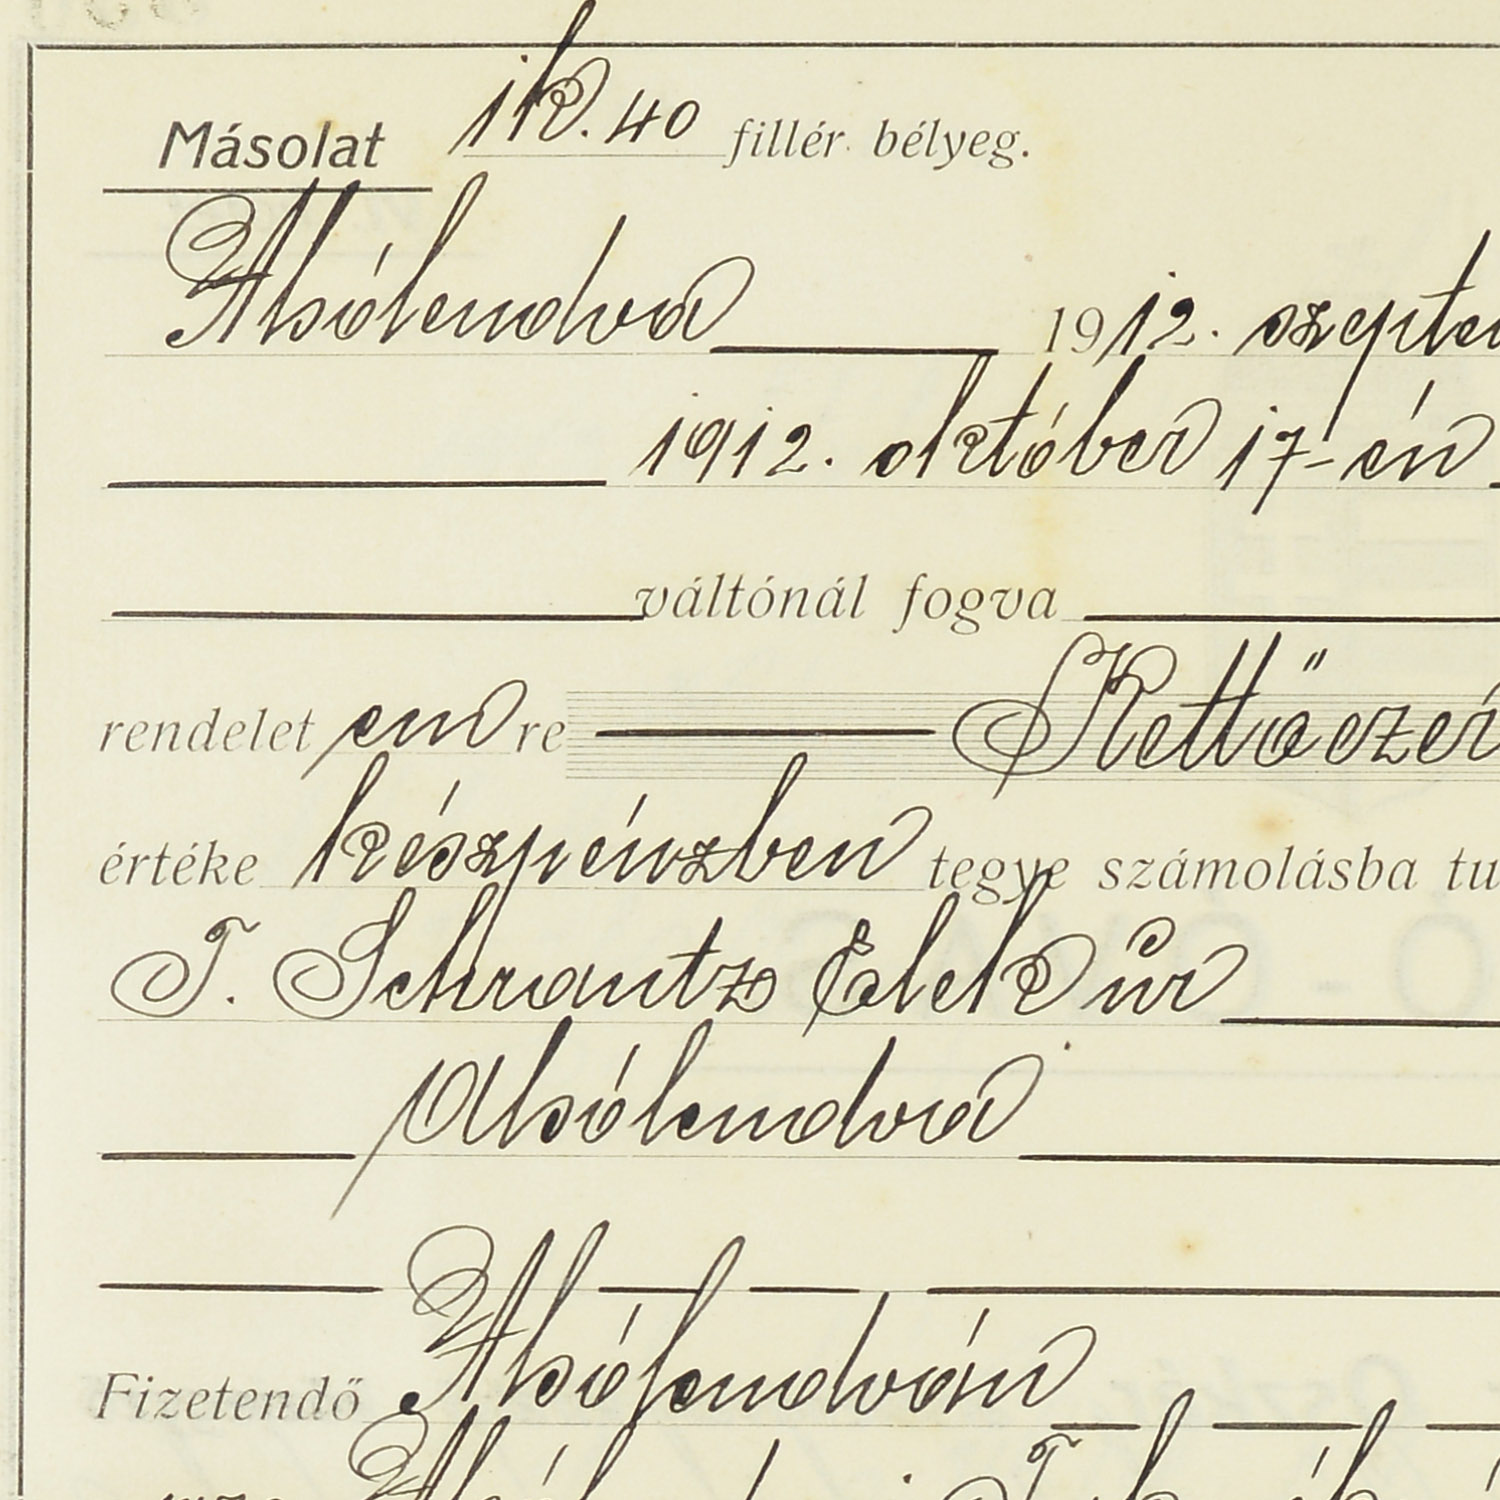 Másolat 1k. 40 fillér bélyeg.
Alsólendva 1912. szeptem
1912. október 17-én
váltónál fogva
rendelet em re Kettőezer
értéke készpénzben tegye számolásba tu
T. Schrantz Elek úr
Alsólendva
Fizetendő Alsólendván